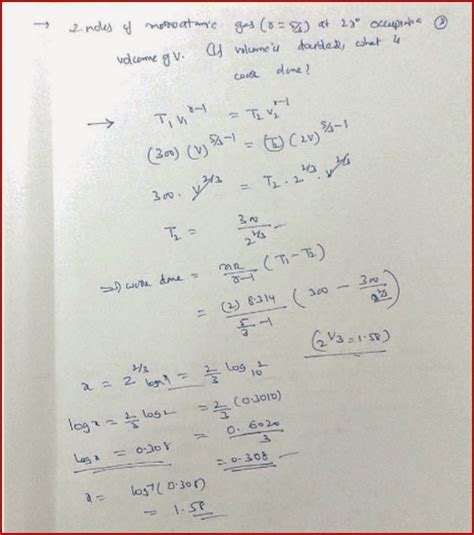 → 2 moles of monoatomic gas (r = 5/3) at 27° occupies a
volume of V. (If volume is doubled, what is
work done?
→ T₁ V₁^(r-1) = T₂ V₂^(r-1)
(300) (V)^(5/3-1) = (T₂) (2V)^(5/3-1)
300 · V^(2/3) = T₂ · 2^(2/3) · V^(2/3)
T₂ = 300 / 2^(2/3)
⇒) work done = nR/(r-1) (T₁ - T₂)
= (2) 8.314 / (5/3 - 1) (300 - 300/2^(2/3))
(2^(2/3) = 1.58)
x = 2^(2/3) log x = 2/3 log₁₀ 2
log x = 2/3 log 2 = 2/3 (0.3010)
= 0.6020/3
log x = 0.308 = 0.308
x = log⁻¹ (0.308)
= 1.58